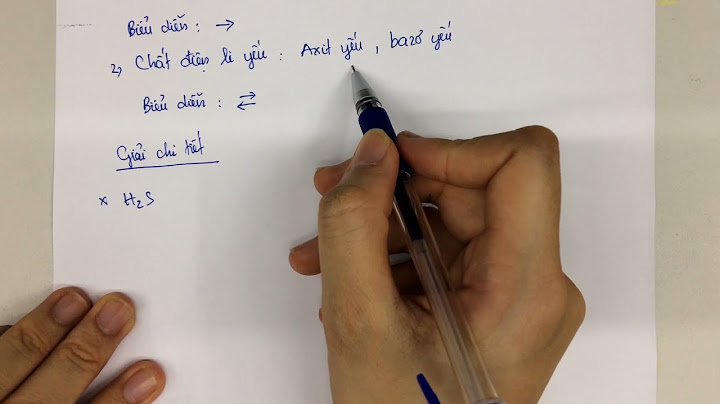 Biểu diễn : →
2, Chất điện li yếu : Axit yếu , bazơ yếu
Biểu diễn : ⇄
Giải chi tiết
× H₂S